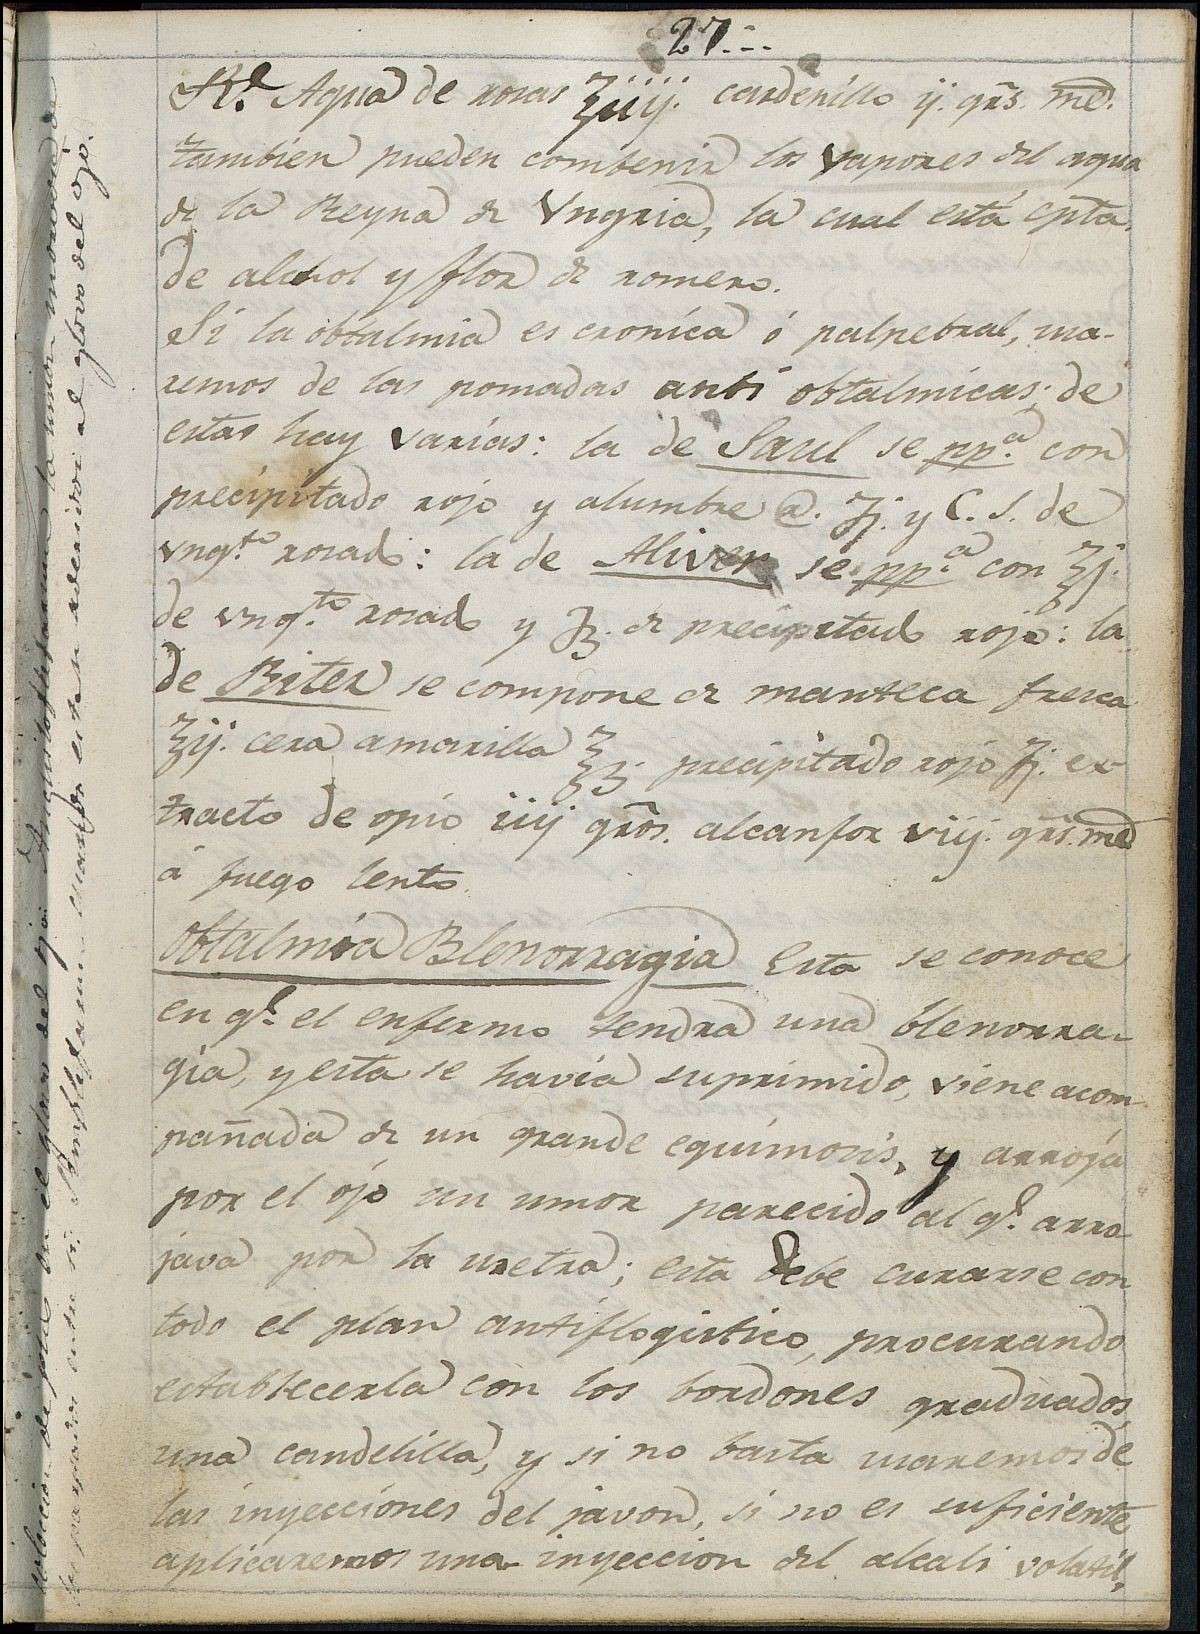 27...
R.e Agua de rosas ℥iiij. cardenillo ij. grs. me.
tambien pueden combenir los vapores del agua
de la Reyna de Vngria, la cual está cpta.
de alcohol y flor de romero.
Si la obtalmia es cronica ó palpebral, usa-
remos de las pomadas anti obtalmicas; de
estas hay varias: la de Saul se pp.a con
precipitado rojo y alumbre a. ʒj. y C. S. de
vng.to rosado: la de Aliver se pp.a con ℥j.
de vng.to rosado y ʒß. de precipitado rojo: la
de Biter se compone de manteca fresca
℥ij. cera amarilla ℥ß. precipitado rojo ʒj. ex-
tracto de opio iiij gros. alcanfor viij. grs. me
á fuego lento.
Obtalmia Blenorragia Esta se conoce
en q.e el enfermo tendra una blenorra-
gia, y esta se havia suprimido, viene acom-
pañada de un grande equimosis, y arroja
por el ojo un umor parecido al q.e arro-
java por la uretra; esta debe curarse con
todo el plan antiflogistico, procurando
establecerla con los bordones graduados,
una candelilla, y si no basta usaremos de
las inyecciones del javon, si no es suficiente
aplicaremos una inyeccion del alcali volatil,
colocion de pus en el glovo del ojo. la union morvosa de
los parpados entre si. Simblefaron cuando estan aderidos al glovo del ojo.